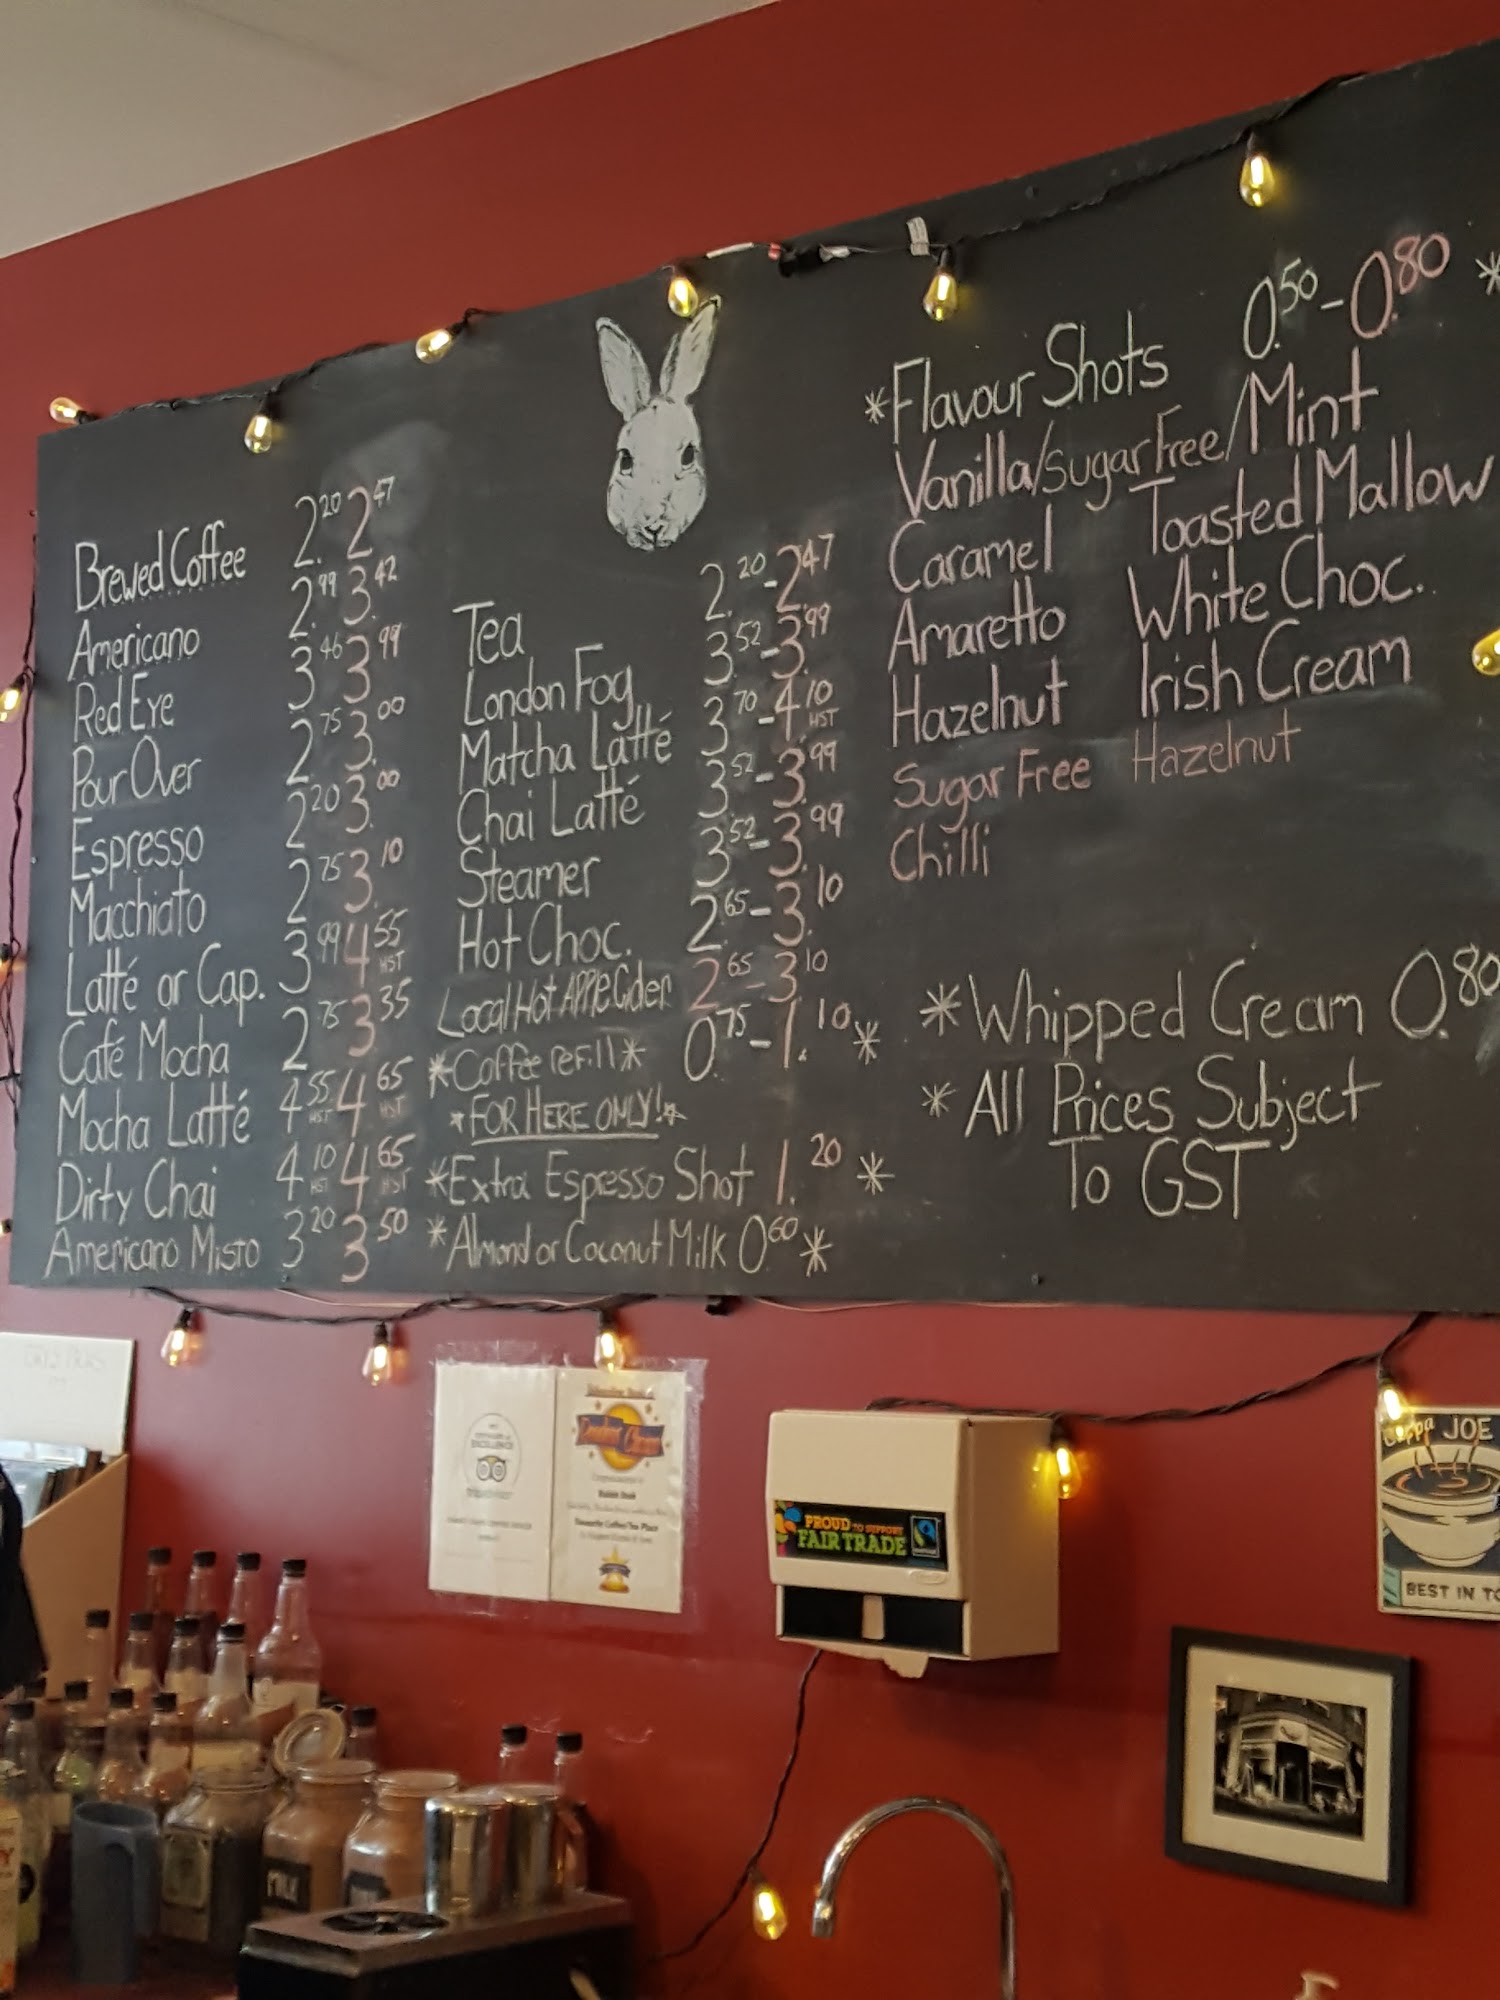 Brewed Coffee 2.20 2.47
Americano 2.99 3.42
Red Eye 3.46 3.99
Pour Over 2.75 3.00
Espresso 2.20 3.00
Macchiato 2.75 3.10
Latté or Cap. 3.99 4.55 HST
Café Mocha 2.75 3.35
Mocha Latté 4.55 HST 4.65 HST
Dirty Chai 4.10 HST 4.65 HST
Americano Misto 3.20 3.50
Tea 2.20-2.47
London Fog 3.52-3.99
Matcha Latté 3.70-4.10 HST
Chai Latté 3.52-3.99
Steamer 3.52-3.99
Hot Choc. 2.65-3.10
Local Hot Apple Cider 2.65-3.10
*Coffee refill* 0.75-1.10*
*FOR HERE ONLY!*
*Extra Espresso Shot 1.20*
*Almond or Coconut Milk 0.60*
*Flavour Shots 0.50-0.80*
Vanilla/Sugar Free/Mint
Caramel Toasted Mallow
Amaretto White Choc.
Hazelnut Irish Cream
Sugar Free Hazelnut
Chilli
*Whipped Cream 0.80
*All Prices Subject
To GST
EXCELLENCE
Favourite Coffee/Tea Place
PROUD TO SUPPORT
FAIR TRADE
Cuppa JOE
BEST IN TO
MILK